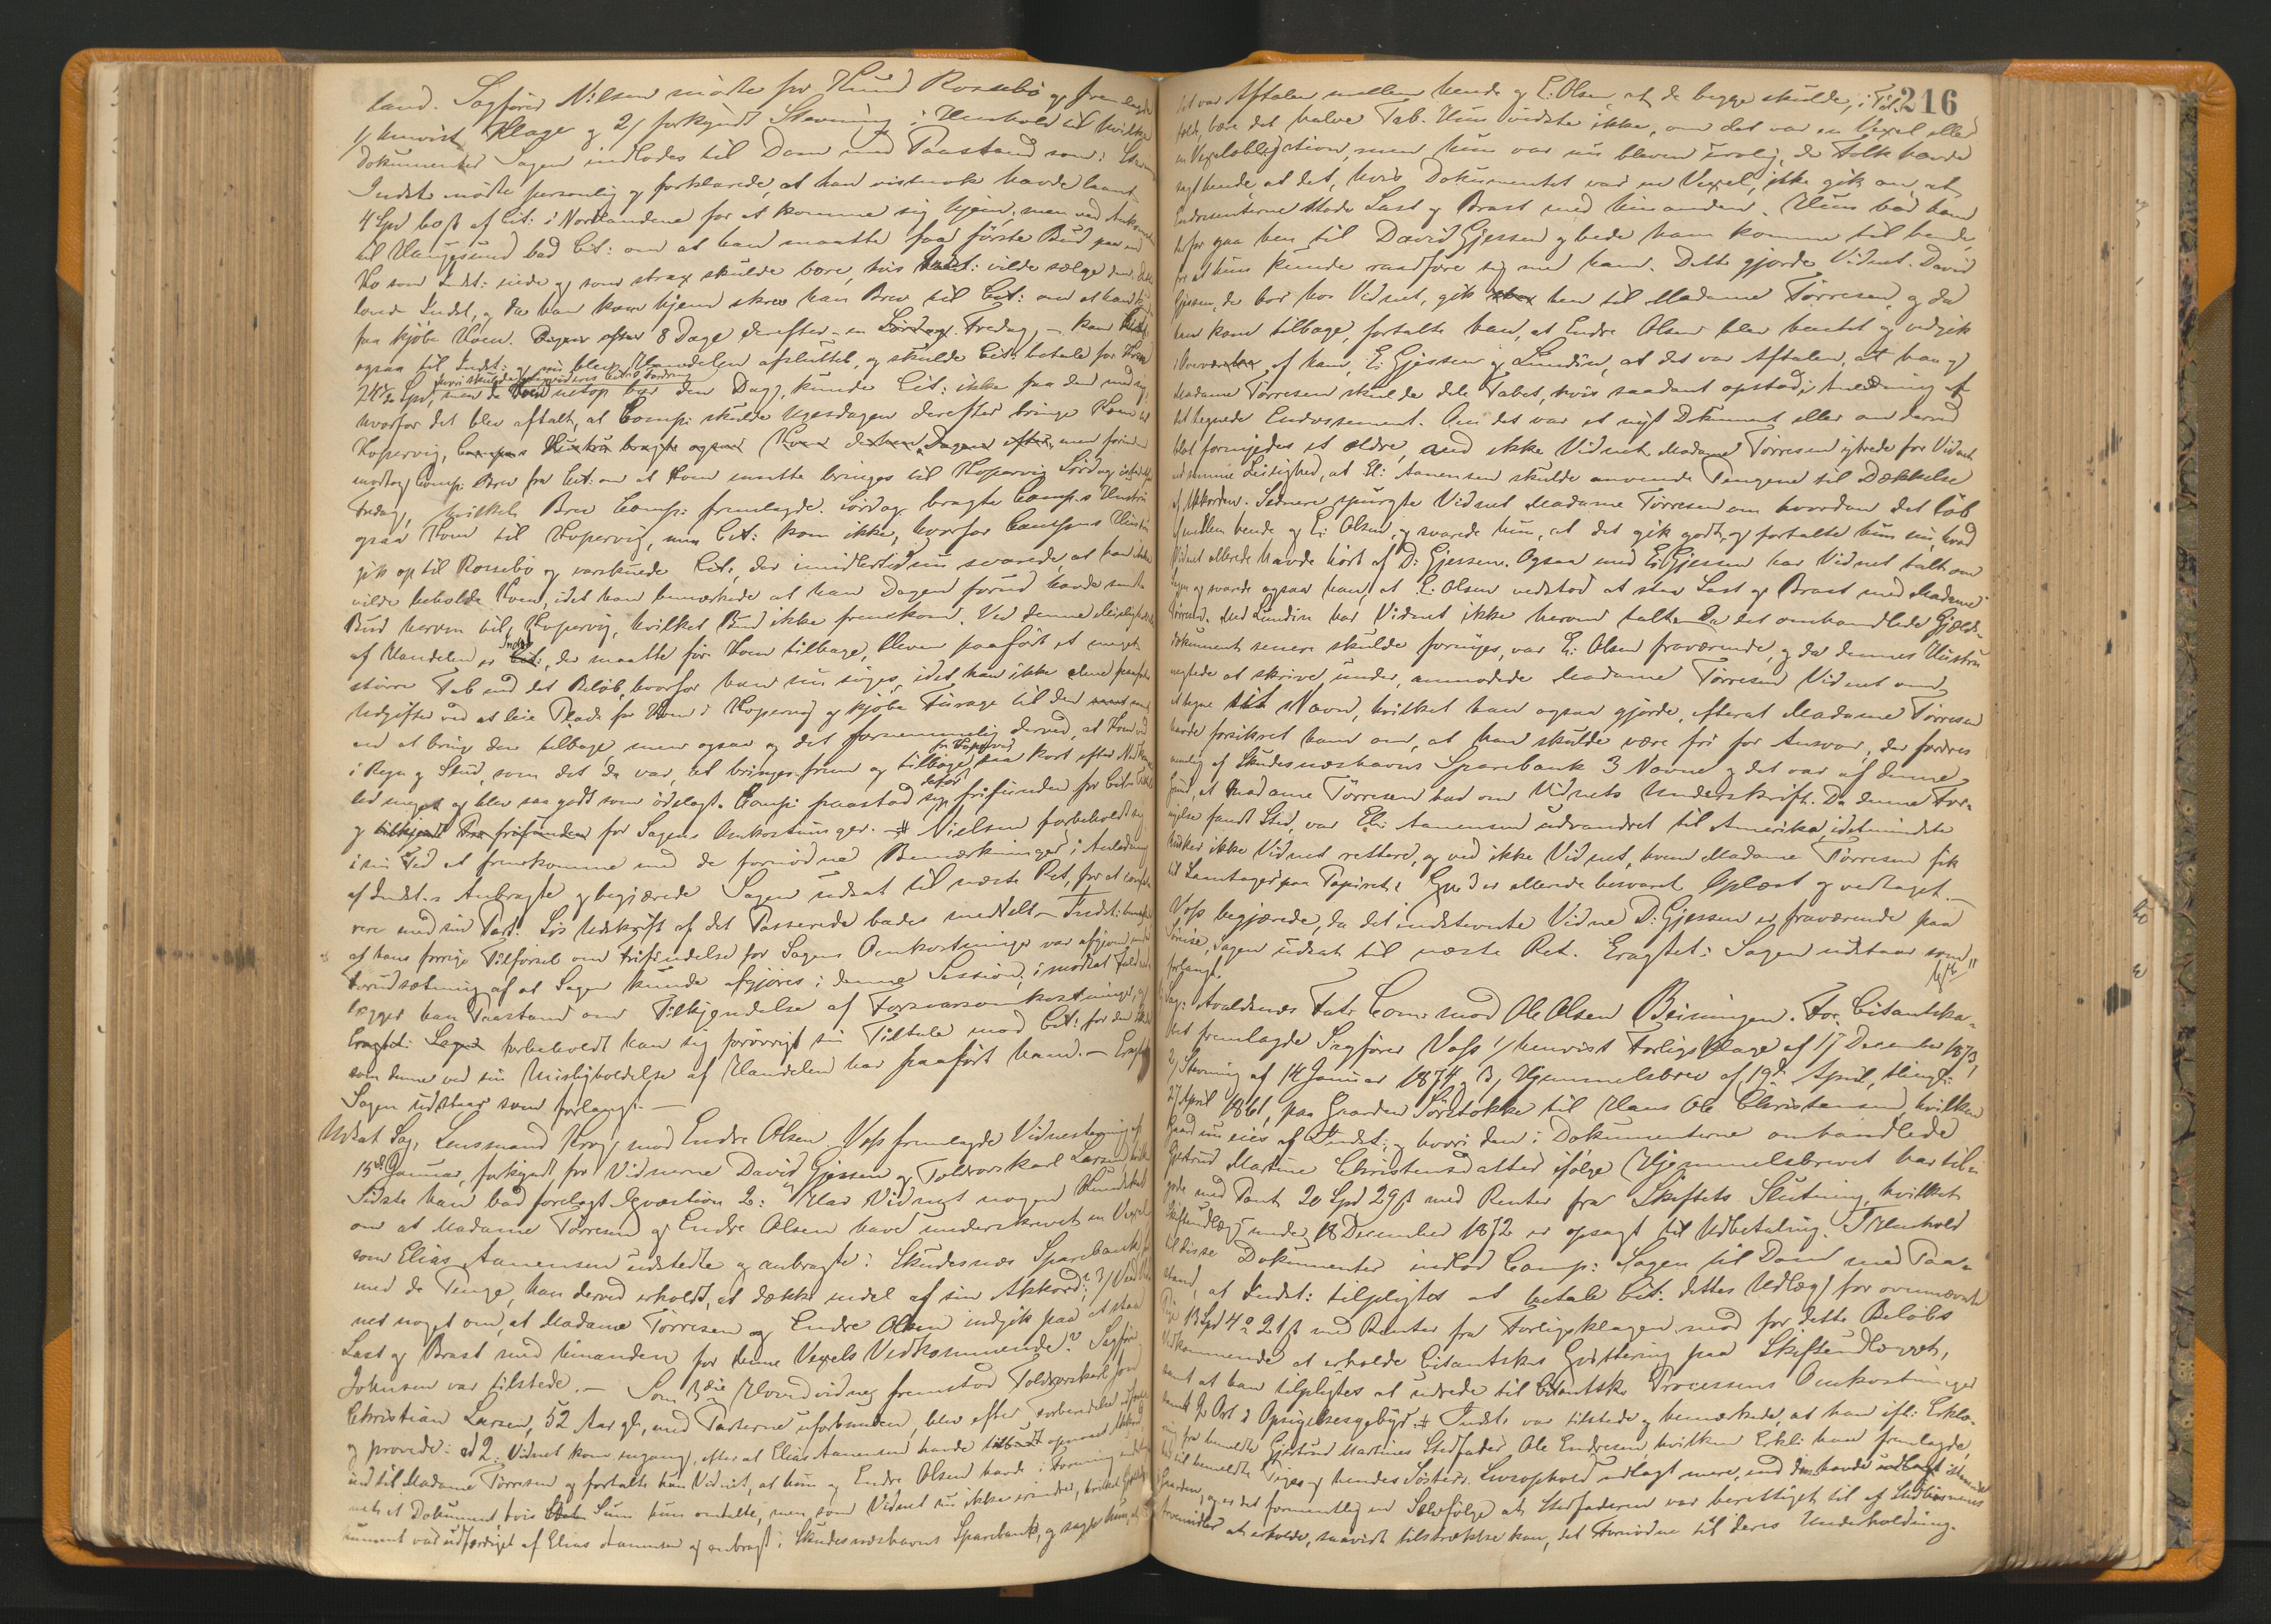 land. Sagfører Nilsen mødte for Knud Rossebø og fremlagde
1/ henvist Klage og 2/ forkyndt Stevning i Henhold til hvilke
Dokumenter Sagen indlodes til Dom med Paastand som i
Indst. mødte personlig og forklarede, at han vistnok havde laant
4 Spd af Cit: i Nordlandene for at komme sig hjem, men ved
til Haugesund bad Cit: om at han maatte faa første Bud paa en
Ho som Indst: eiede og som strax skulde bære, hvis Indst: vilde sælge den.
lovede Indst, og da han kom hjem skrev han Brev til Cit: om at han
faa kjøbe Hoen. 8 Dage derefter - en Fredag - kom
ogsaa til Indst: og nu blev Handelen afsluttet, og skulde Cit: betale for Hoen
24½ Spd, men da netop den Dag, kunde Cit: ikke faa den med sig,
hvorfor det blev aftalt, at Comp: skulde Ugesdagen derefter bringe Hoen til
Kopervig, men forinden
modtog Comp: Brev fra Cit: om at Hoen maatte bringes til Kopervig Lørdag istedetfor
Fredag, hvilket Brev Comp: fremlagde. Lørdag bragte Comp.s Hustru
ogsaa Hoen til Kopervig, men Cit: kom ikke, hvorfor Comp.s Hustru
gik op til Rossebø og varskuede Cit:, der imidlertid nu svarede, at han ikke
vilde beholde Hoen, idet han bemærkede at han Dagen forud havde sendt
Bud herom til Kopervig, hvilket Bud ikke fremkom. Ved denne
af Handelen er Indst:, der maatte føre Hoen tilbage, bleven paaført et meget
større Tab end det Beløb, hvorfor han nu søges, idet han ikke alene
Udgifter ved at leie Plads for Hoen i Kopervig og kjøbe Furage til den
ved at bringe den tilbage, men ogsaa og det fornemmelig derved, at Hoen ved
i Regn og Slud, som det da var, at bringes frem og tilbage fra Kopervig saa kort efter
led meget og blev saa godt som ødelagt. Comp: paastod sig derfor frifunden for Cit:s
og for Sagens Omkostninger. - Nielsen forbeholdt sig
i sin Tid at fremkomme med de fornødne Bemærkninger i Anledning
af Indst.s Anbragte og begjærede Sagen udsat til næste Ret, for at
rere med sin Part. Løs Udskrift af det Passerede bades meddelt. - Indst:
at hans forrige Tilførsel om Frifindelse for Sagens Omkostninger var afgiven under
Forudsætning af at Sagen kunde afgjøres i denne Session; i modsat Fald
lægger han Paastand om Tilkjendelse af Forsvarsomkostninger,
forbeholdt han sig forøvrigt sin Tiltale mod Cit: for den
som denne ved sin Misligholdelse af Handelen har paaført ham. -
Sagen udstaar som forlangt. -
Udsat Sag, Lensmand Krog mod Endre Olsen. Voss fremlagde Vidnestevning af
15de Januar, forkyndt for Vidnerne David Gjessen og Toldvorskarl Larsen
Sidste han bad forelagt Qvæstion 2: Har Vidnet nogen Kundskab
om at Madame Tørresen og Endre Olsen have underskrevet en Vexel
som Elias Aanensen udstedte og anbragte i Skudesnæs Sparebank
med de Penge, han derved erholdt, at dække endel af sin Akkord; 3/ Veed
net noget om, at Madame Tørresen og Endre Olsen indgik paa at staa
Last og Brast med hinanden for denne Vexels Vedkommende? Sagfører
Johnsen var tilstede. - Som 3die Hovedvidne fremstod Toldvorskarl
Christian Larsen, 52 Aar gl., med Parterne uforbunden, blev efter Forberedelse
og provede: ad 2: Vidnet kom engang, efter at Elias Aanensen havde opnaaet Akkord
ind til Madame Tørresen og fortalte hun Vidnet, at hun og Endre Olsen havde i Forening
net et Dokument hvis Sum hun omtalte, men som Vidnet nu ikke erindrer, hvilket
kument var udfærdiget af Elias Aanensen og anbragt i Skudesnæshavns Sparebank, og sagde hun
216
det var Aftalen mellem hende og E. Olsen, at de begge skulde, i Til-
fælde, bære det halve Tab. Hun vidste ikke, om det var en Vexel eller
en Vexelobligation, men hun var nu bleven urolig, da Folk havde
sagt hende, at det, hvis Dokumentet var en Vexel, ikke gik an, at
Endossenterne stode Last og Brast med hinanden. Hun bad ham
derfor gaa hen til David Gjessen og bede ham komme til hende,
for at hun kunde raadføre sig med ham. Dette gjorde Vidnet. David
Gjessen, der bor hos Vidnet, gik hen til Madame Tørresen, og da
han kom tilbage, fortalte han, at Endre Olsen blev hentet og vedgik
i Overvær af ham, E: Gjessen og Lundin, at det var Aftalen, at han og
Madame Tørresen skulde dele Tabet, hvis saadant opstod i Anledning af
det tegnede Endossement. Om det var et nyt Dokument eller om derved
blot fornyedes et ældre, ved ikke Vidnet. Madame Tørresen ytrede for Vidnet
ved samme Leilighed, at El: Aanensen skulde anvende Pengene til Dækkelse
af Akkorden. Sednere spurgte Vidnet Madame Tørresen om hvordan det løb
af mellem hende og E: Olsen, og svarede hun, at det gik godt, og fortalte hun nu, hvad
Vidnet allerede havde hørt af D: Gjessen. Ogsaa med E: Gjessen har Vidnet talt om
Sagen og svarede ogsaa han, at E: Olsen vedstod at staa Last og Brast med Madame
Tørresen. Med Lundin har Vidnet ikke herom talt. Da det omhandlede Gjælds-
dokument senere skulde fornyes, var E: Olsen fraværende, og da dennes Hustru
negtede at skrive under, anmodede Madame Tørresen Vidnet om
at tegne sit Navn, hvilket han ogsaa gjorde, efterat Madame Tørresen
havde forsikret ham om, at han skulde være fri for Ansvar, der fordres
nemlig af Skudesnæshavns Sparebank 3 Navne og det var af denne
Grund, at Madame Tørresen bad om Vidnets Underskrift. Da denne For-
nyelse fandt Sted, var El: Aanensen udvandret til Amerika, idetmindste
husker ikke Vidnet rettere, og ved ikke Vidnet, hvem Madame Tørresen fik
til Laantager paa Papiret. Qvæ 3 er allerede besvaret. Oplæst og vedtaget. -
Voss begjærede, da det indstevnte Vidne D: Gjessen er fraværende paa
Søreise, Sagen udsat til næste Ret. Eragtet: Sagen udstaar som
forlangt.
Sag: Avaldsnæs Fat: Com: mod Ole Olsen Beiningen. For Citantska-
bet fremlagde Sagfører Voss 1/ henvist Forligsklage af 17 December 1873,
2/ Stevning af 14 Januar 1874, 3/ Hjemmelsbrev af 19de April, thingl:
27 April 1861, paa Gaarden Sørstokke til Hans Ole Christensen, hvilken
Gaard nu eies af Indst: og hvori den i Dokumenterne omhandlede
Gjertrud Martine Christensdatter ifølge Hjemmelsbrevet har til-
gode med Pant 20 Spd 29 ß med Renter fra Skiftets Slutning, hvilket
Skifteudlæg under 18 December 1872 er opsagt til Udbetaling. I Henhold
til disse Dokumenter indlod Comp: Sagen til Dom med Paa-
stand, at Indst: tilpligtes at betale Cit: dettes Udlæg for ovennævnte
Pige 13 Spd 4 o 21 ß med Renter fra Forligsklagen, mod for dette Beløbs
Vedkommende at erholde Citantskets Qvittering paa Skifteudlægget,
samt at han tilpligtes at udrede til Citantsk. Processens Omkostninger
samt 2 Ort i Opsigelsesgebyr. Indst. var tilstede og bemærkede, at han ifl: Erklæ-
ring fra bemeldte Gjertrud Martines Stedfader, Ole Endresen hvilken Erkl: han fremlagde,
har til bemeldte Piges og hendes Søsters Livsophold udlagt mere, end den havde
Gaarden, og er det formentlig en Selvfølge at Stedfaderen var berettiget til af Stedbørnenes
Arvemidler at erholde, saavidt tilstrækkes kan, det Fornødne til deres Underholdning.